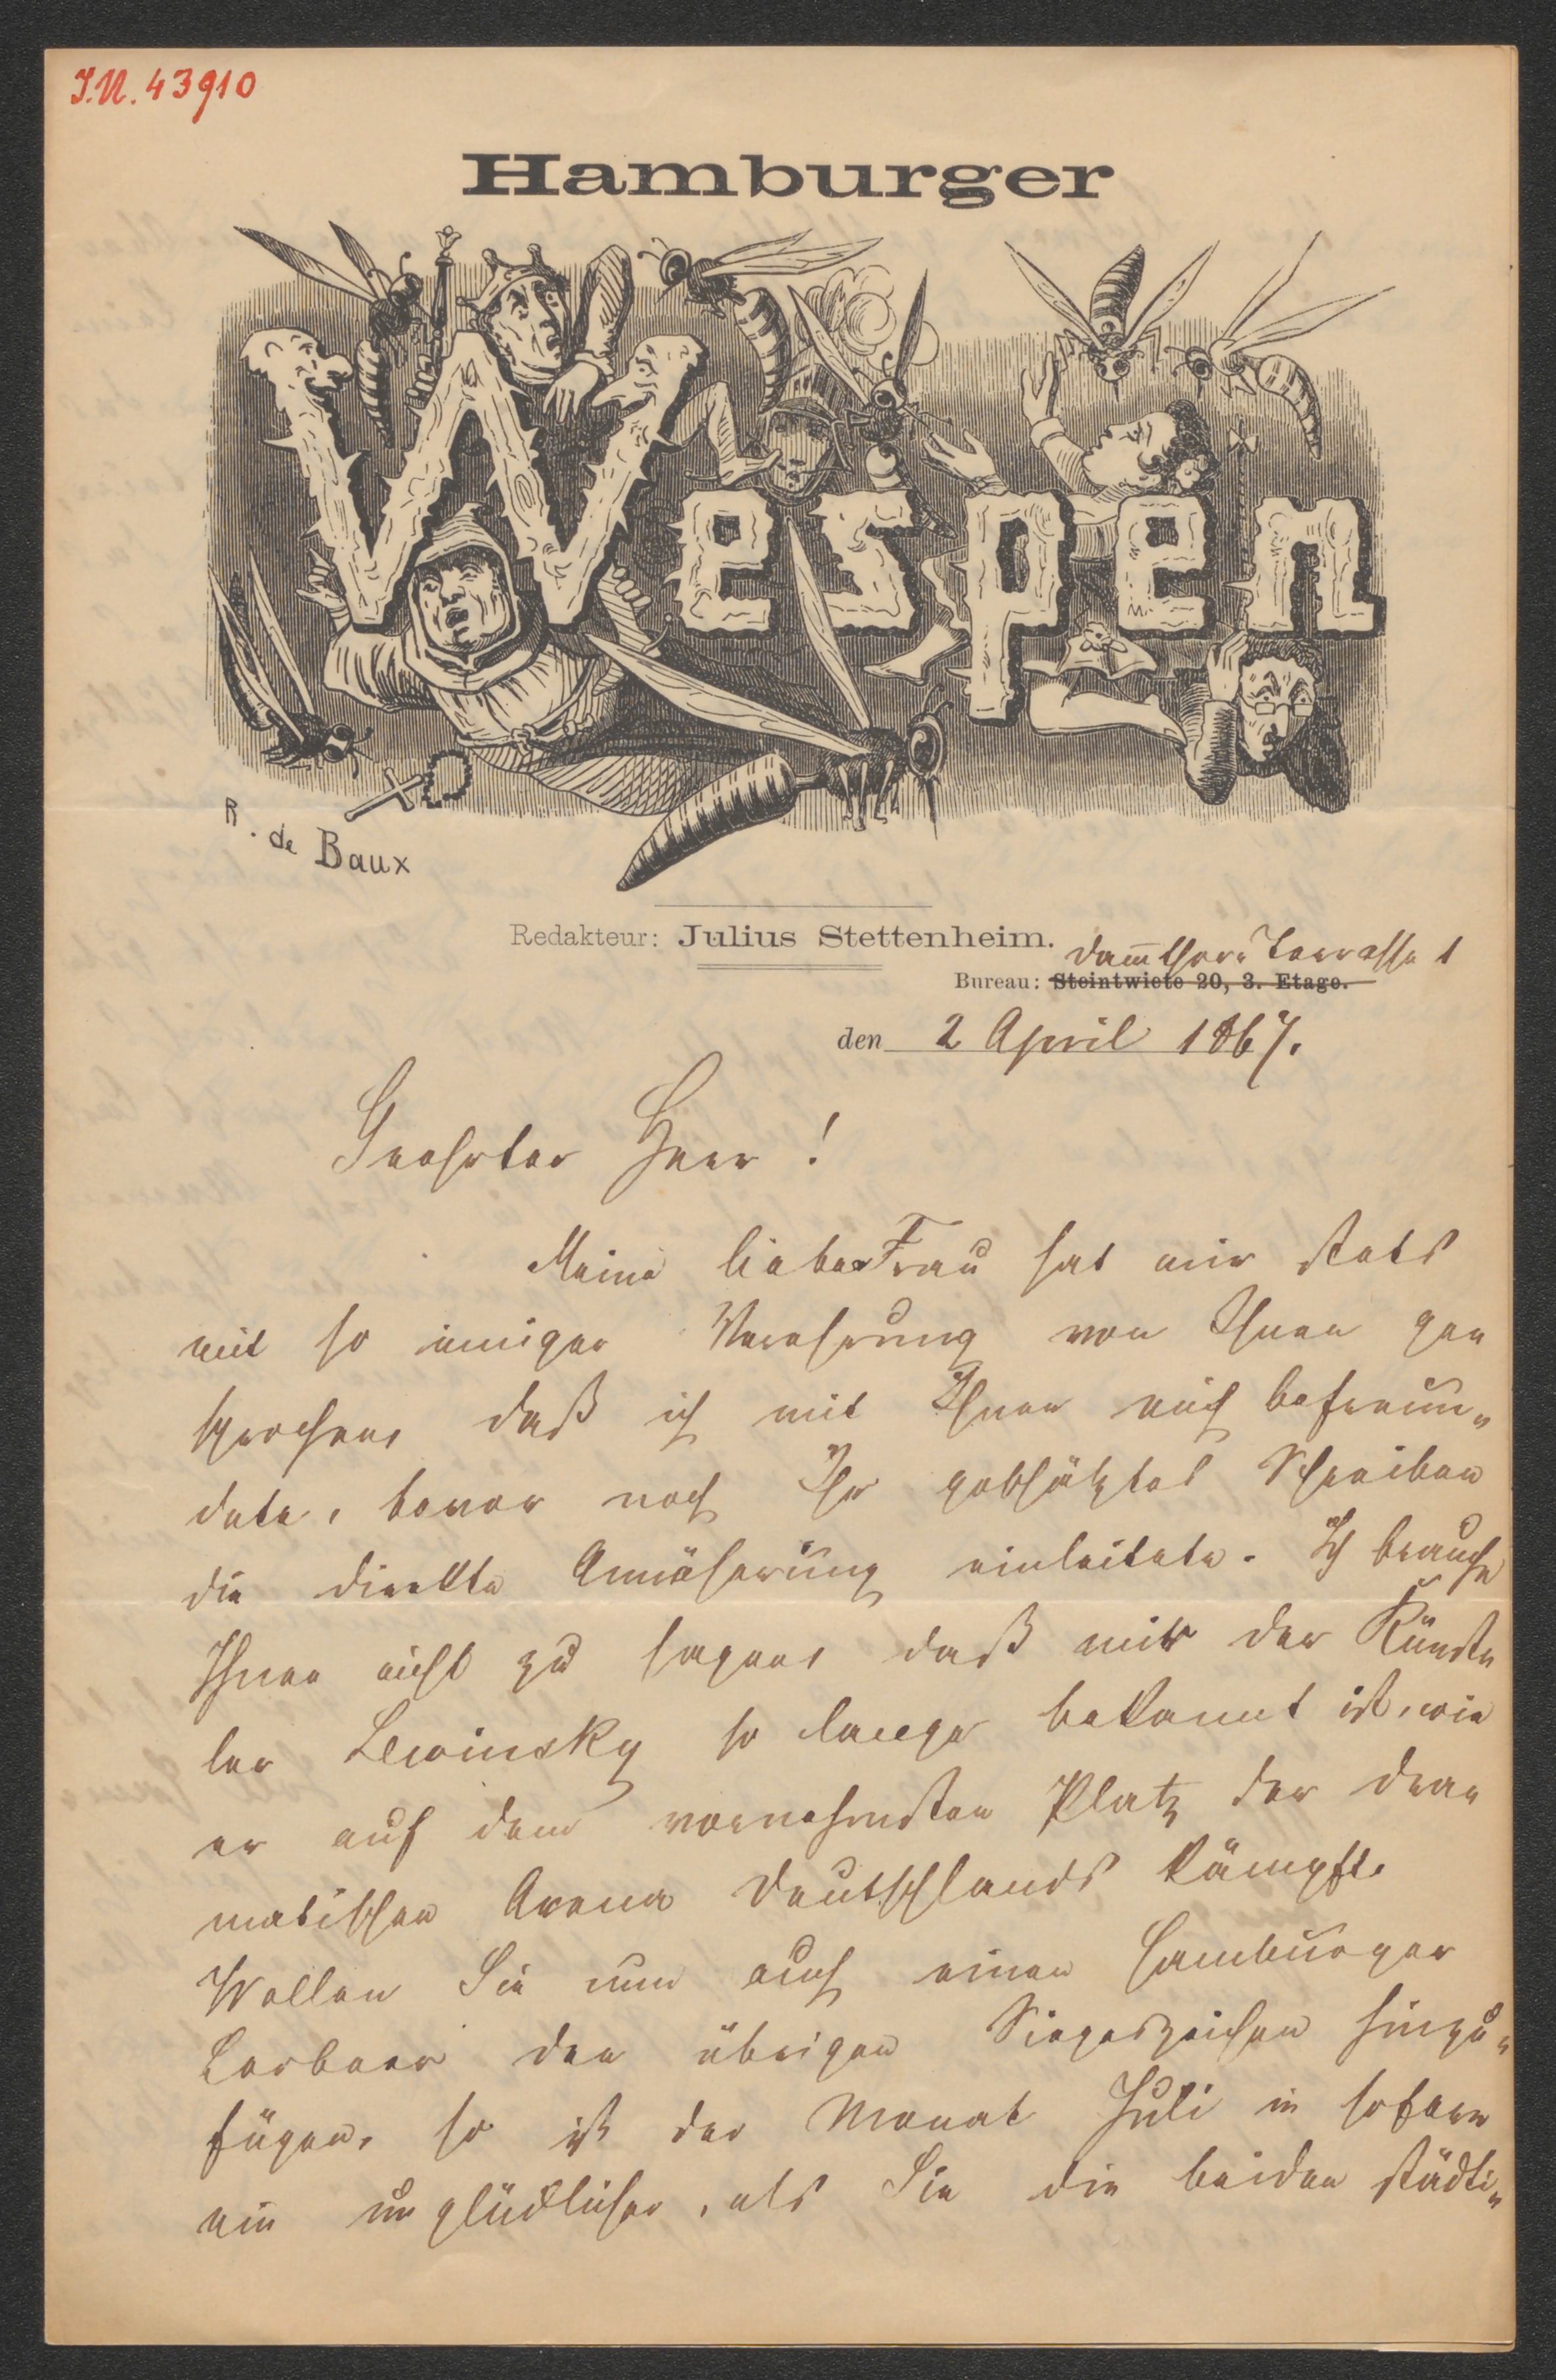 I.N. 43910
Hamburger
Wespen
R. de Baux
Redakteur: Julius Stettenheim.
Dam̅thor-Terrasse 1
Bureau: Steintwiete 20, 3. Etage.
den 2 April 1867.
Geehrter Herr!
Meine liebe Frau hat mir stets
mit so inniger Verehrung von Ihnen ge-
sprochen, daß ich mit Ihnen mich befreun-
dete, bevor noch Ihr geschätztes Schreiben
die direkte Annäherung einleitete. Ich brauche
Ihnen nicht zu sagen, daß mir der Künst-
ler Lewinsky so lange bekannt ist, wie
er auf dem vornehmsten Platz der dra-
matischen Arena Deutschlands kämpft.
Wollen Sie nun auch einen Hamburger
Lorbeer den übrigen Siegeszeichen hinzu-
fügen, so ist der Monat Juli in sofern
ein unglücklicher, als Sie die beiden städti-